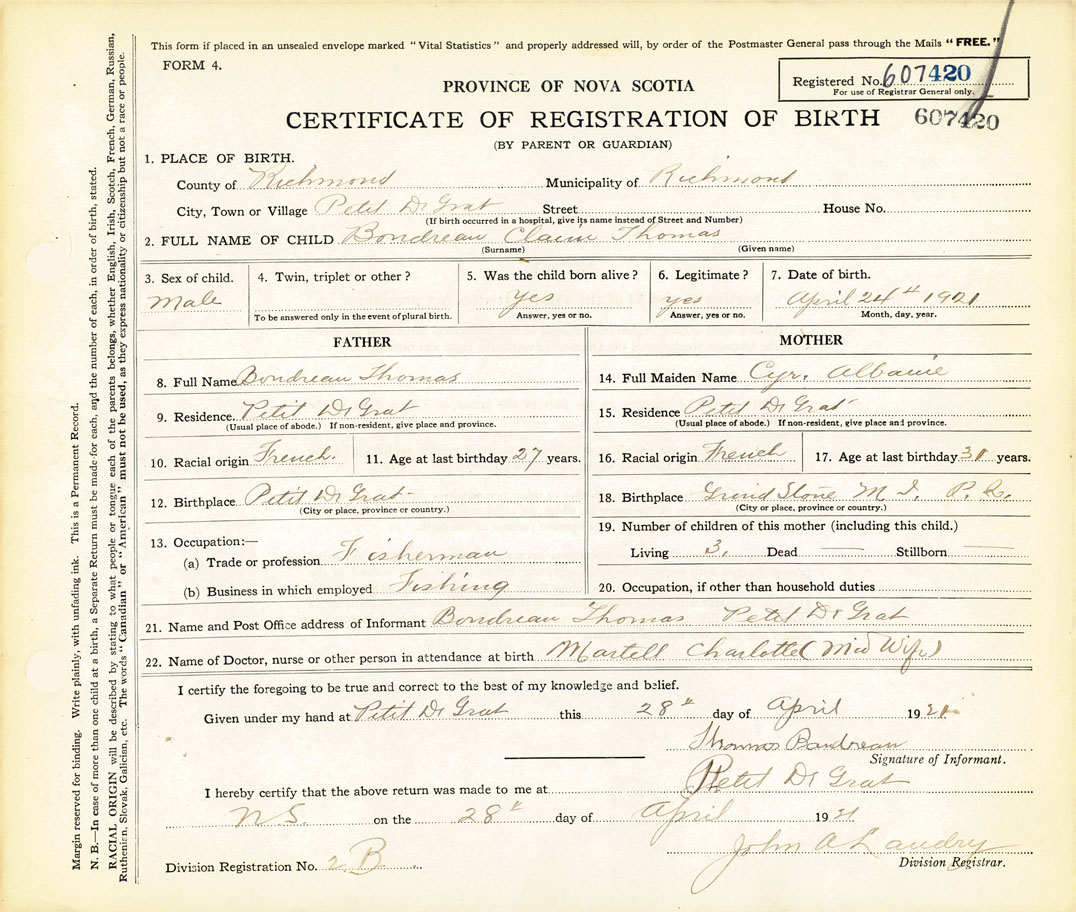 This form if placed in an unsealed envelope marked "Vital Statistics" and properly addressed will, by order of the Postmaster General pass through the Mails "FREE."
FORM 4.
Registered No. 607420
For use of Registrar General only.
PROVINCE OF NOVA SCOTIA
CERTIFICATE OF REGISTRATION OF BIRTH 607420
(BY PARENT OR GUARDIAN)
1. PLACE OF BIRTH.
County of Richmond Municipality of Richmond
City, Town or Village Petit De Grat Street House No.
(If birth occurred in a hospital, give its name instead of Street and Number)
2. FULL NAME OF CHILD Boudreau Thomas
(Surname) (Given name)
3. Sex of child. Male
4. Twin, triplet or other?
To be answered only in the event of plural birth.
5. Was the child born alive? yes
Answer, yes or no.
6. Legitimate? yes
Answer, yes or no.
7. Date of birth. April 24th 1921
Month, day, year.
FATHER
8. Full Name Boudreau Thomas
9. Residence. Petit De Grat
(Usual place of abode.) If non-resident, give place and province.
10. Racial origin French. 11. Age at last birthday 27 years.
12. Birthplace Petit De Grat
(City or place, province or country.)
13. Occupation:—
(a) Trade or profession Fisherman
(b) Business in which employed Fishing
MOTHER
14. Full Maiden Name Cyr. Albanie
15. Residence Petit De Grat
(Usual place of abode.) If non-resident, give place and province.
16. Racial origin French 17. Age at last birthday 31 years.
18. Birthplace Grind Stone M. I. P. Q.
(City or place, province or country.)
19. Number of children of this mother (including this child.)
Living 3. Dead — Stillborn —
20. Occupation, if other than household duties
21. Name and Post Office address of Informant Boudreau Thomas Petit De Grat
22. Name of Doctor, nurse or other person in attendance at birth Martell Charlotte (Mid Wife)
I certify the foregoing to be true and correct to the best of my knowledge and belief.
Given under my hand at Petit De Grat this 28th day of April 1921
Thomas Boudreau
Signature of Informant.
I hereby certify that the above return was made to me at Petit De Grat
N.S. on the 28th day of April 1921
John A Landry
Division Registrar.
Division Registration No. 2 B
Margin reserved for binding. Write plainly, with unfading ink. This is a Permanent Record.
N. B.—In case of more than one child at a birth, a Separate Return must be made for each, and the number of each, in order of birth, stated.
RACIAL ORIGIN will be described by stating to what people or tongue each of the parents belongs, whether English, Irish, Scotch, French, German, Russian,
Ruthenian, Slovak, Galician, etc. The words "Canadian" or "American" must not be used, as they express nationality or citizenship but not a race or people.